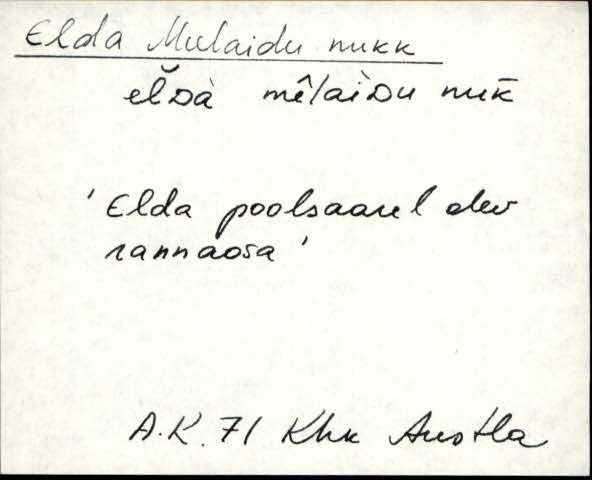 Elda Mulaidu nukk
elᴅà mêlaiᴅu nuk̄
'Elda poolsaarel olev
rannaosa'
A.K. 71 Khk Austla